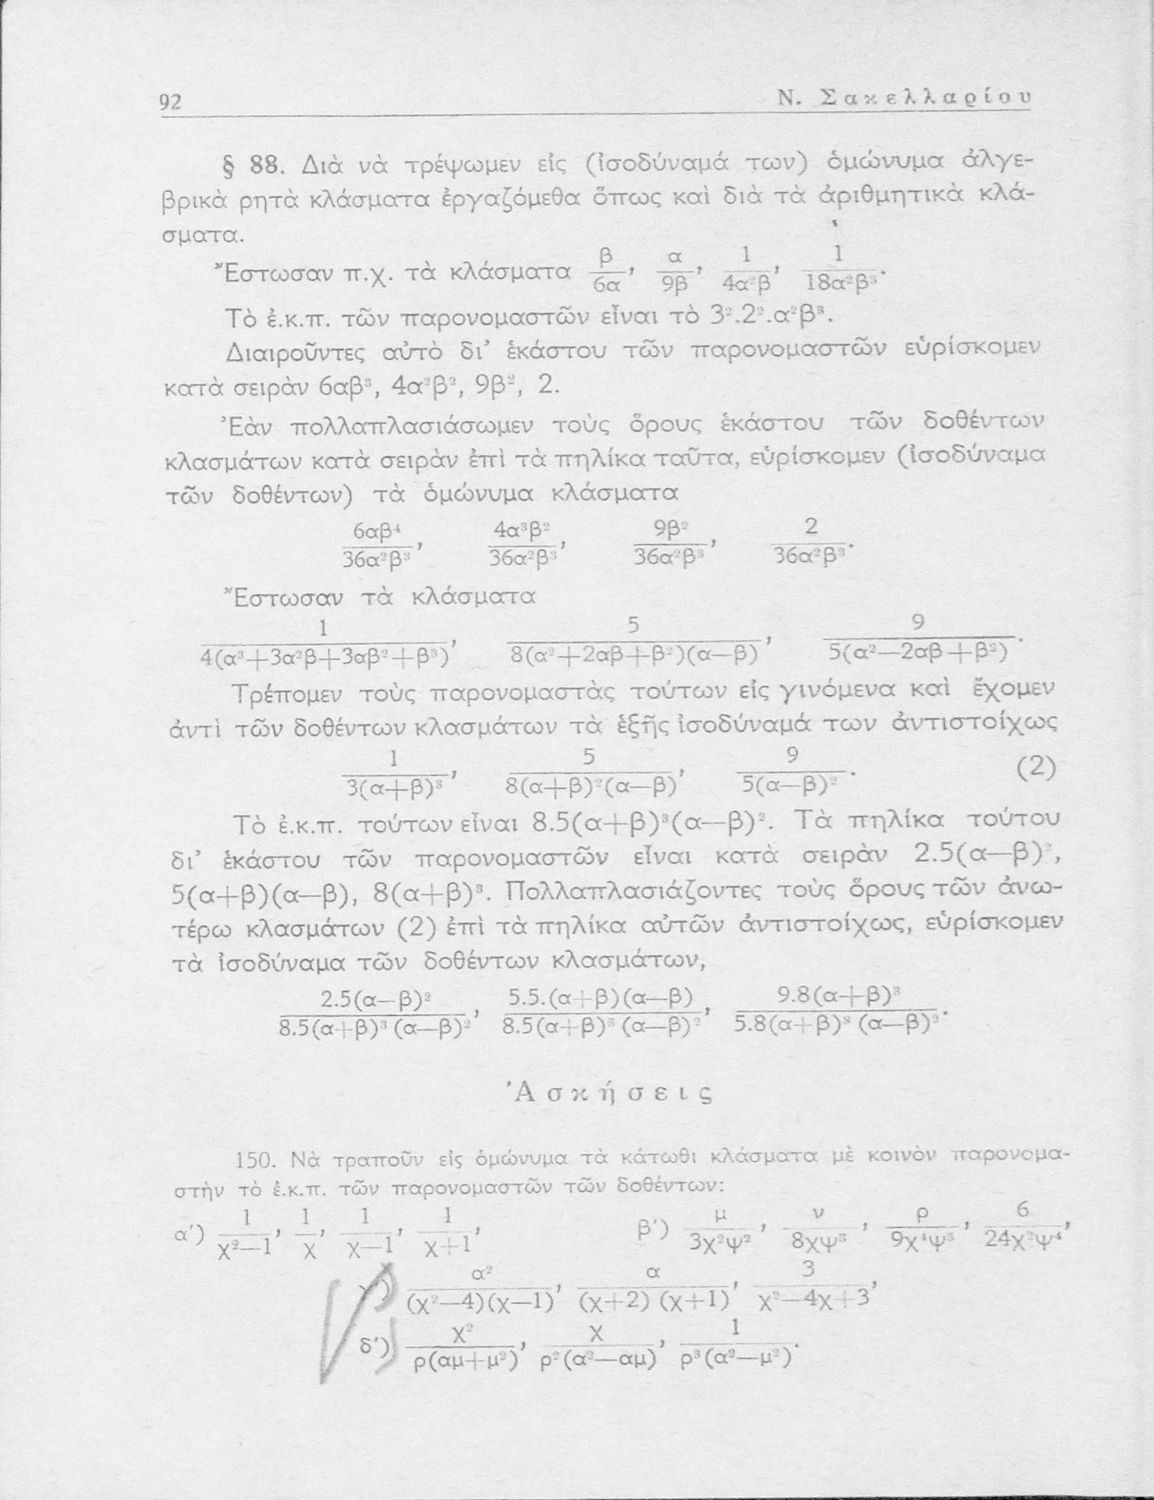 92 Ν. Σακελλαρίου
§ 88. Διὰ νὰ τρέψωμεν εἰς (ἰσοδύναμά των) ὁμώνυμα ἀλγε-
βρικὰ ρητὰ κλάσματα ἐργαζόμεθα ὅπως καὶ διὰ τὰ ἀριθμητικὰ κλά-
σματα.
Ἔστωσαν π.χ. τὰ κλάσματα β/6α, α/9β, 1/4α²β, 1/18α²β³.
Τὸ ἐ.κ.π. τῶν παρονομαστῶν εἶναι τὸ 3².2².α²β³.
Διαιροῦντες αὐτὸ δι’ ἑκάστου τῶν παρονομαστῶν εὑρίσκομεν
κατὰ σειρὰν 6αβ³, 4α²β², 9β², 2.
Ἐὰν πολλαπλασιάσωμεν τοὺς ὅρους ἑκάστου τῶν δοθέντων
κλασμάτων κατὰ σειρὰν ἐπὶ τὰ πηλίκα ταῦτα, εὑρίσκομεν (ἰσοδύναμα
τῶν δοθέντων) τὰ ὁμώνυμα κλάσματα
6αβ⁴/36α²β³, 4α³β²/36α²β³, 9β²/36α²β³, 2/36α²β³.
Ἔστωσαν τὰ κλάσματα
1/4(α³+3α²β+3αβ²+β³), 5/8(α²+2αβ+β²)(α—β), 9/5(α²—2αβ+β²).
Τρέπομεν τοὺς παρονομαστὰς τούτων εἰς γινόμενα καὶ ἔχομεν
ἀντὶ τῶν δοθέντων κλασμάτων τὰ ἑξῆς ἰσοδύναμά των ἀντιστοίχως
1/3(α+β)³, 5/8(α+β)²(α—β), 9/5(α—β)². (2)
Τὸ ἐ.κ.π. τούτων εἶναι 8.5(α+β)³(α—β)². Τὰ πηλίκα τούτου
δι’ ἑκάστου τῶν παρονομαστῶν εἶναι κατὰ σειρὰν 2.5(α—β)²,
5(α+β)(α—β), 8(α+β)³. Πολλαπλασιάζοντες τοὺς ὅρους τῶν ἀνω-
τέρω κλασμάτων (2) ἐπὶ τὰ πηλίκα αὐτῶν ἀντιστοίχως, εὑρίσκομεν
τὰ ἰσοδύναμα τῶν δοθέντων κλασμάτων,
2.5(α—β)²/8.5(α+β)³(α—β)², 5.5.(α+β)(α—β)/8.5(α+β)³(α—β)², 9.8(α+β)³/5.8(α+β)³(α—β)².
Ἀσκήσεις
150. Νὰ τραποῦν εἰς ὁμώνυμα τὰ κάτωθι κλάσματα μὲ κοινὸν παρονομα-
στὴν τὸ ἐ.κ.π. τῶν παρονομαστῶν τῶν δοθέντων:
α′) 1/χ²—1, 1/χ, 1/χ—1, 1/χ+1, β′) μ/3χ²ψ², ν/8χψ³, ρ/9χ⁴ψ³, 6/24χ²ψ⁴,
γ′) α²/(χ²—4)(χ—1), α/(χ+2)(χ+1), 3/χ²—4χ+3,
δ′) χ²/ρ(αμ+μ²), χ/ρ²(α²—αμ), 1/ρ³(α²—μ²).